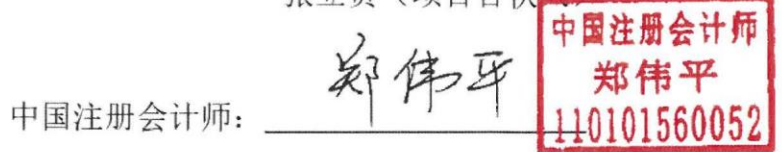 中国注册会计师:郑伟平
中国注册会计师
郑伟平
110101560052